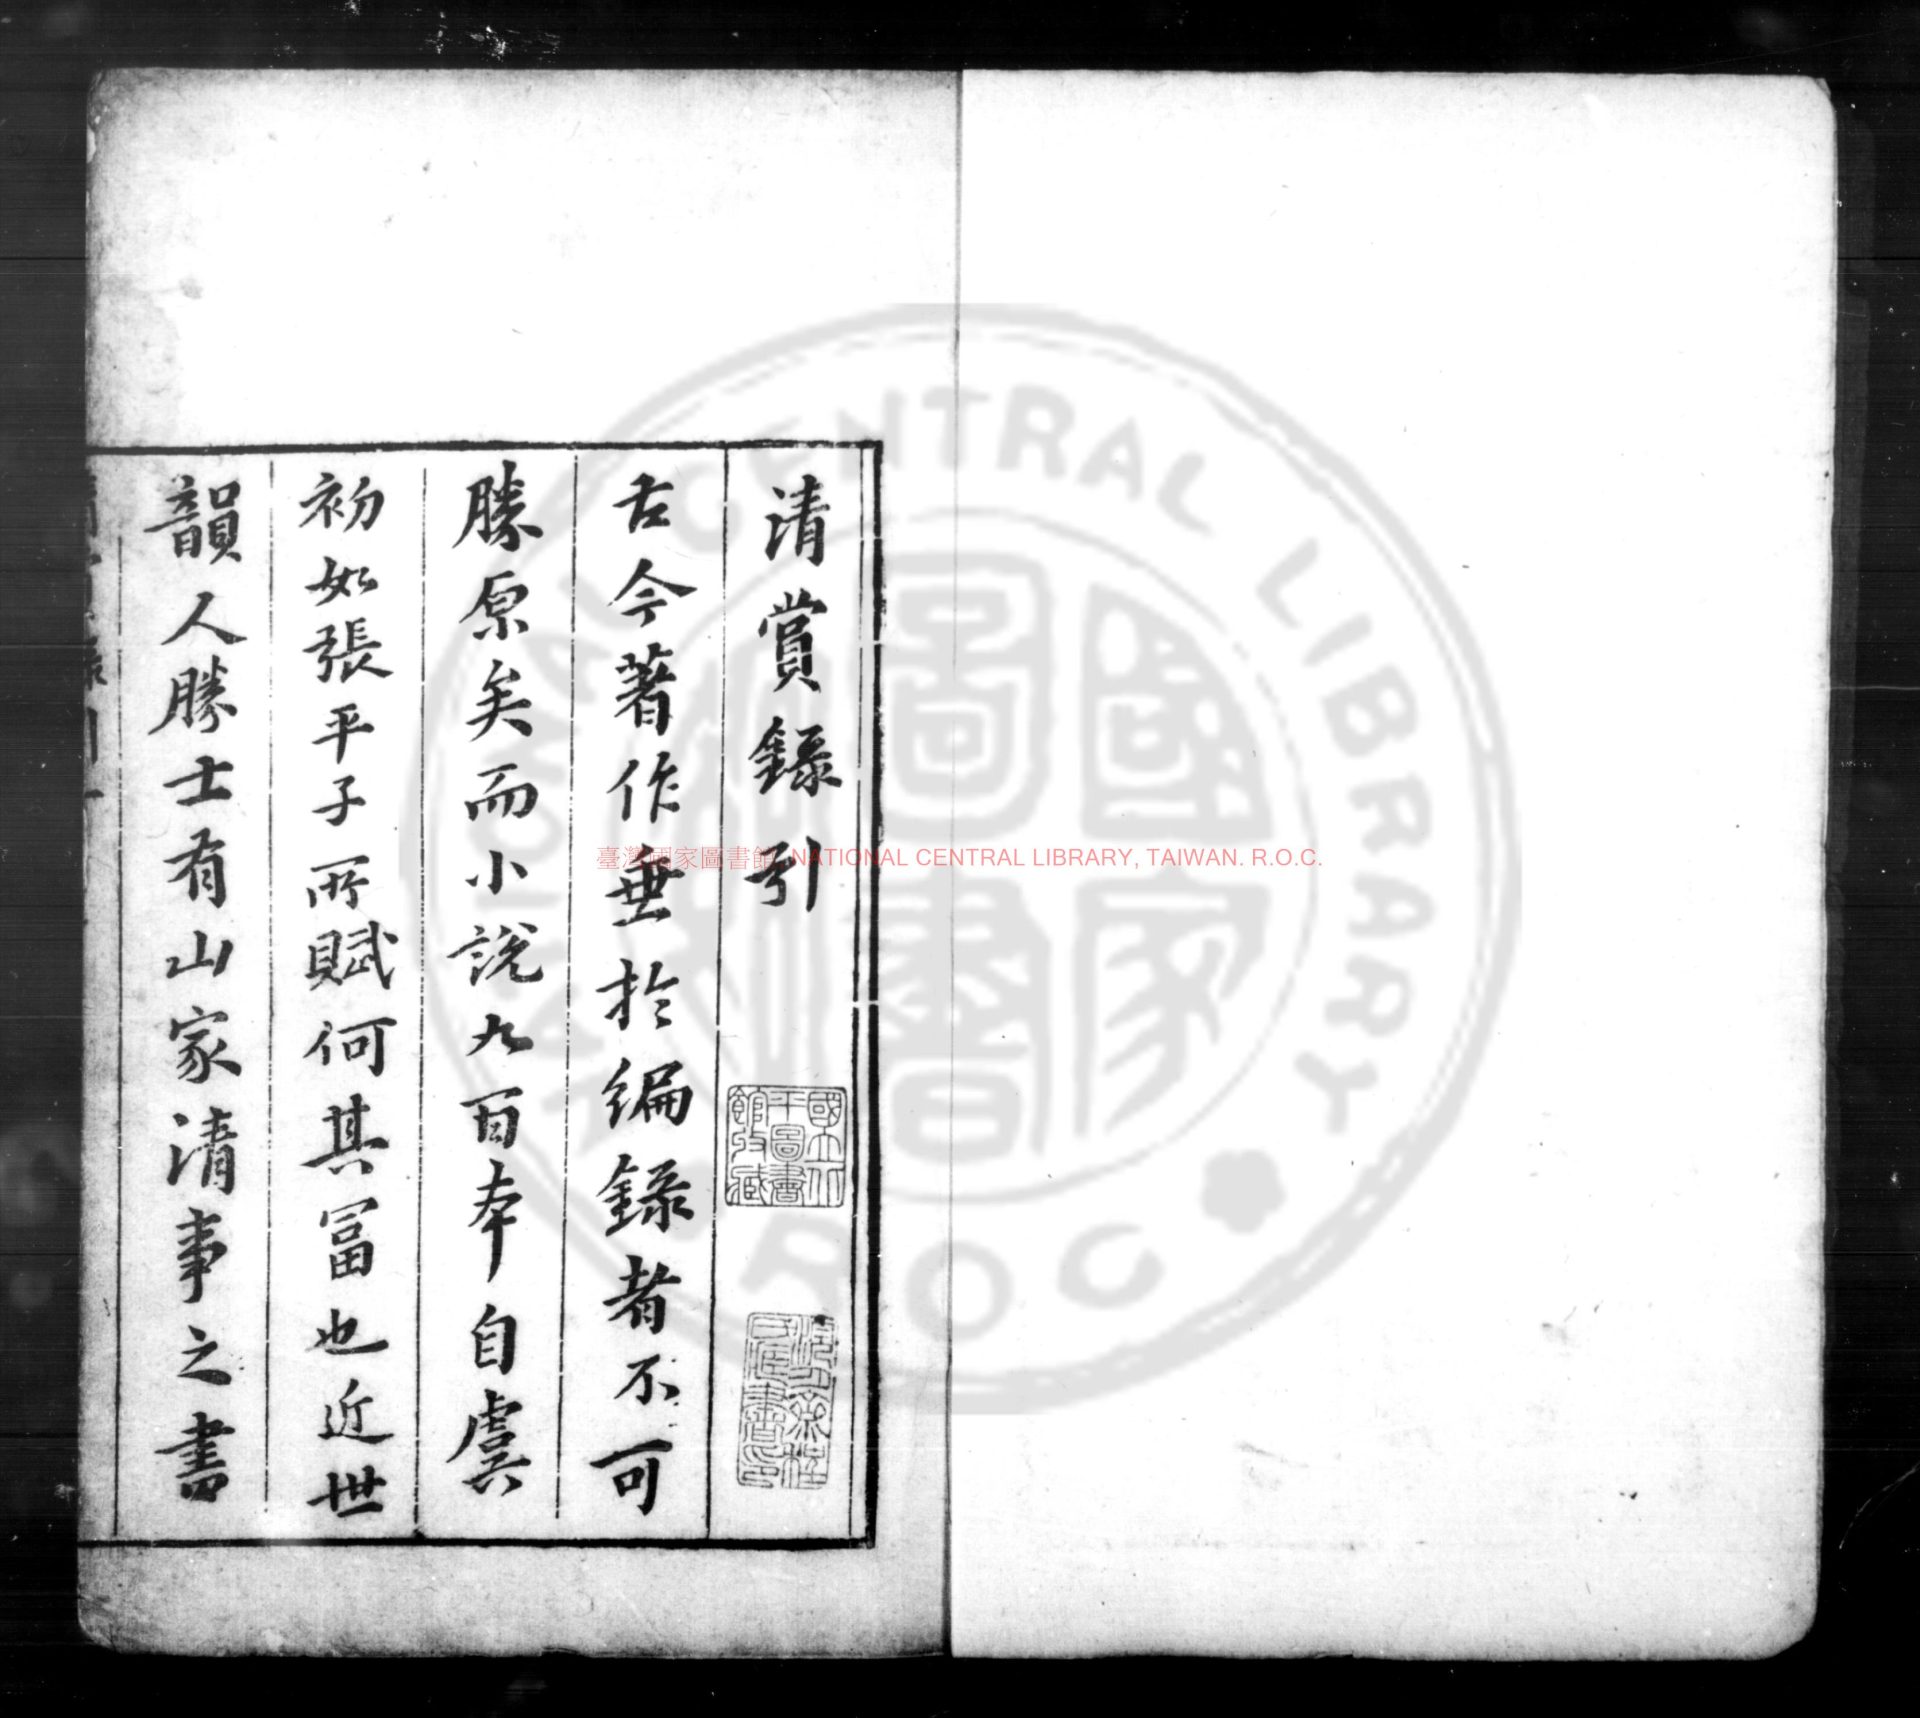 清賞錄引
古今著作垂於編錄者不可
勝原矣而小說九百本自虞
初如張平子所賦何其冨也近世
韻人勝士有山家清事之書
國立北
平圖書
館收藏
臺灣國家圖書館 NATIONAL CENTRAL LIBRARY, TAIWAN. R.O.C.
NATIONAL CENTRAL LIBRARY R.O.C
國家圖書館